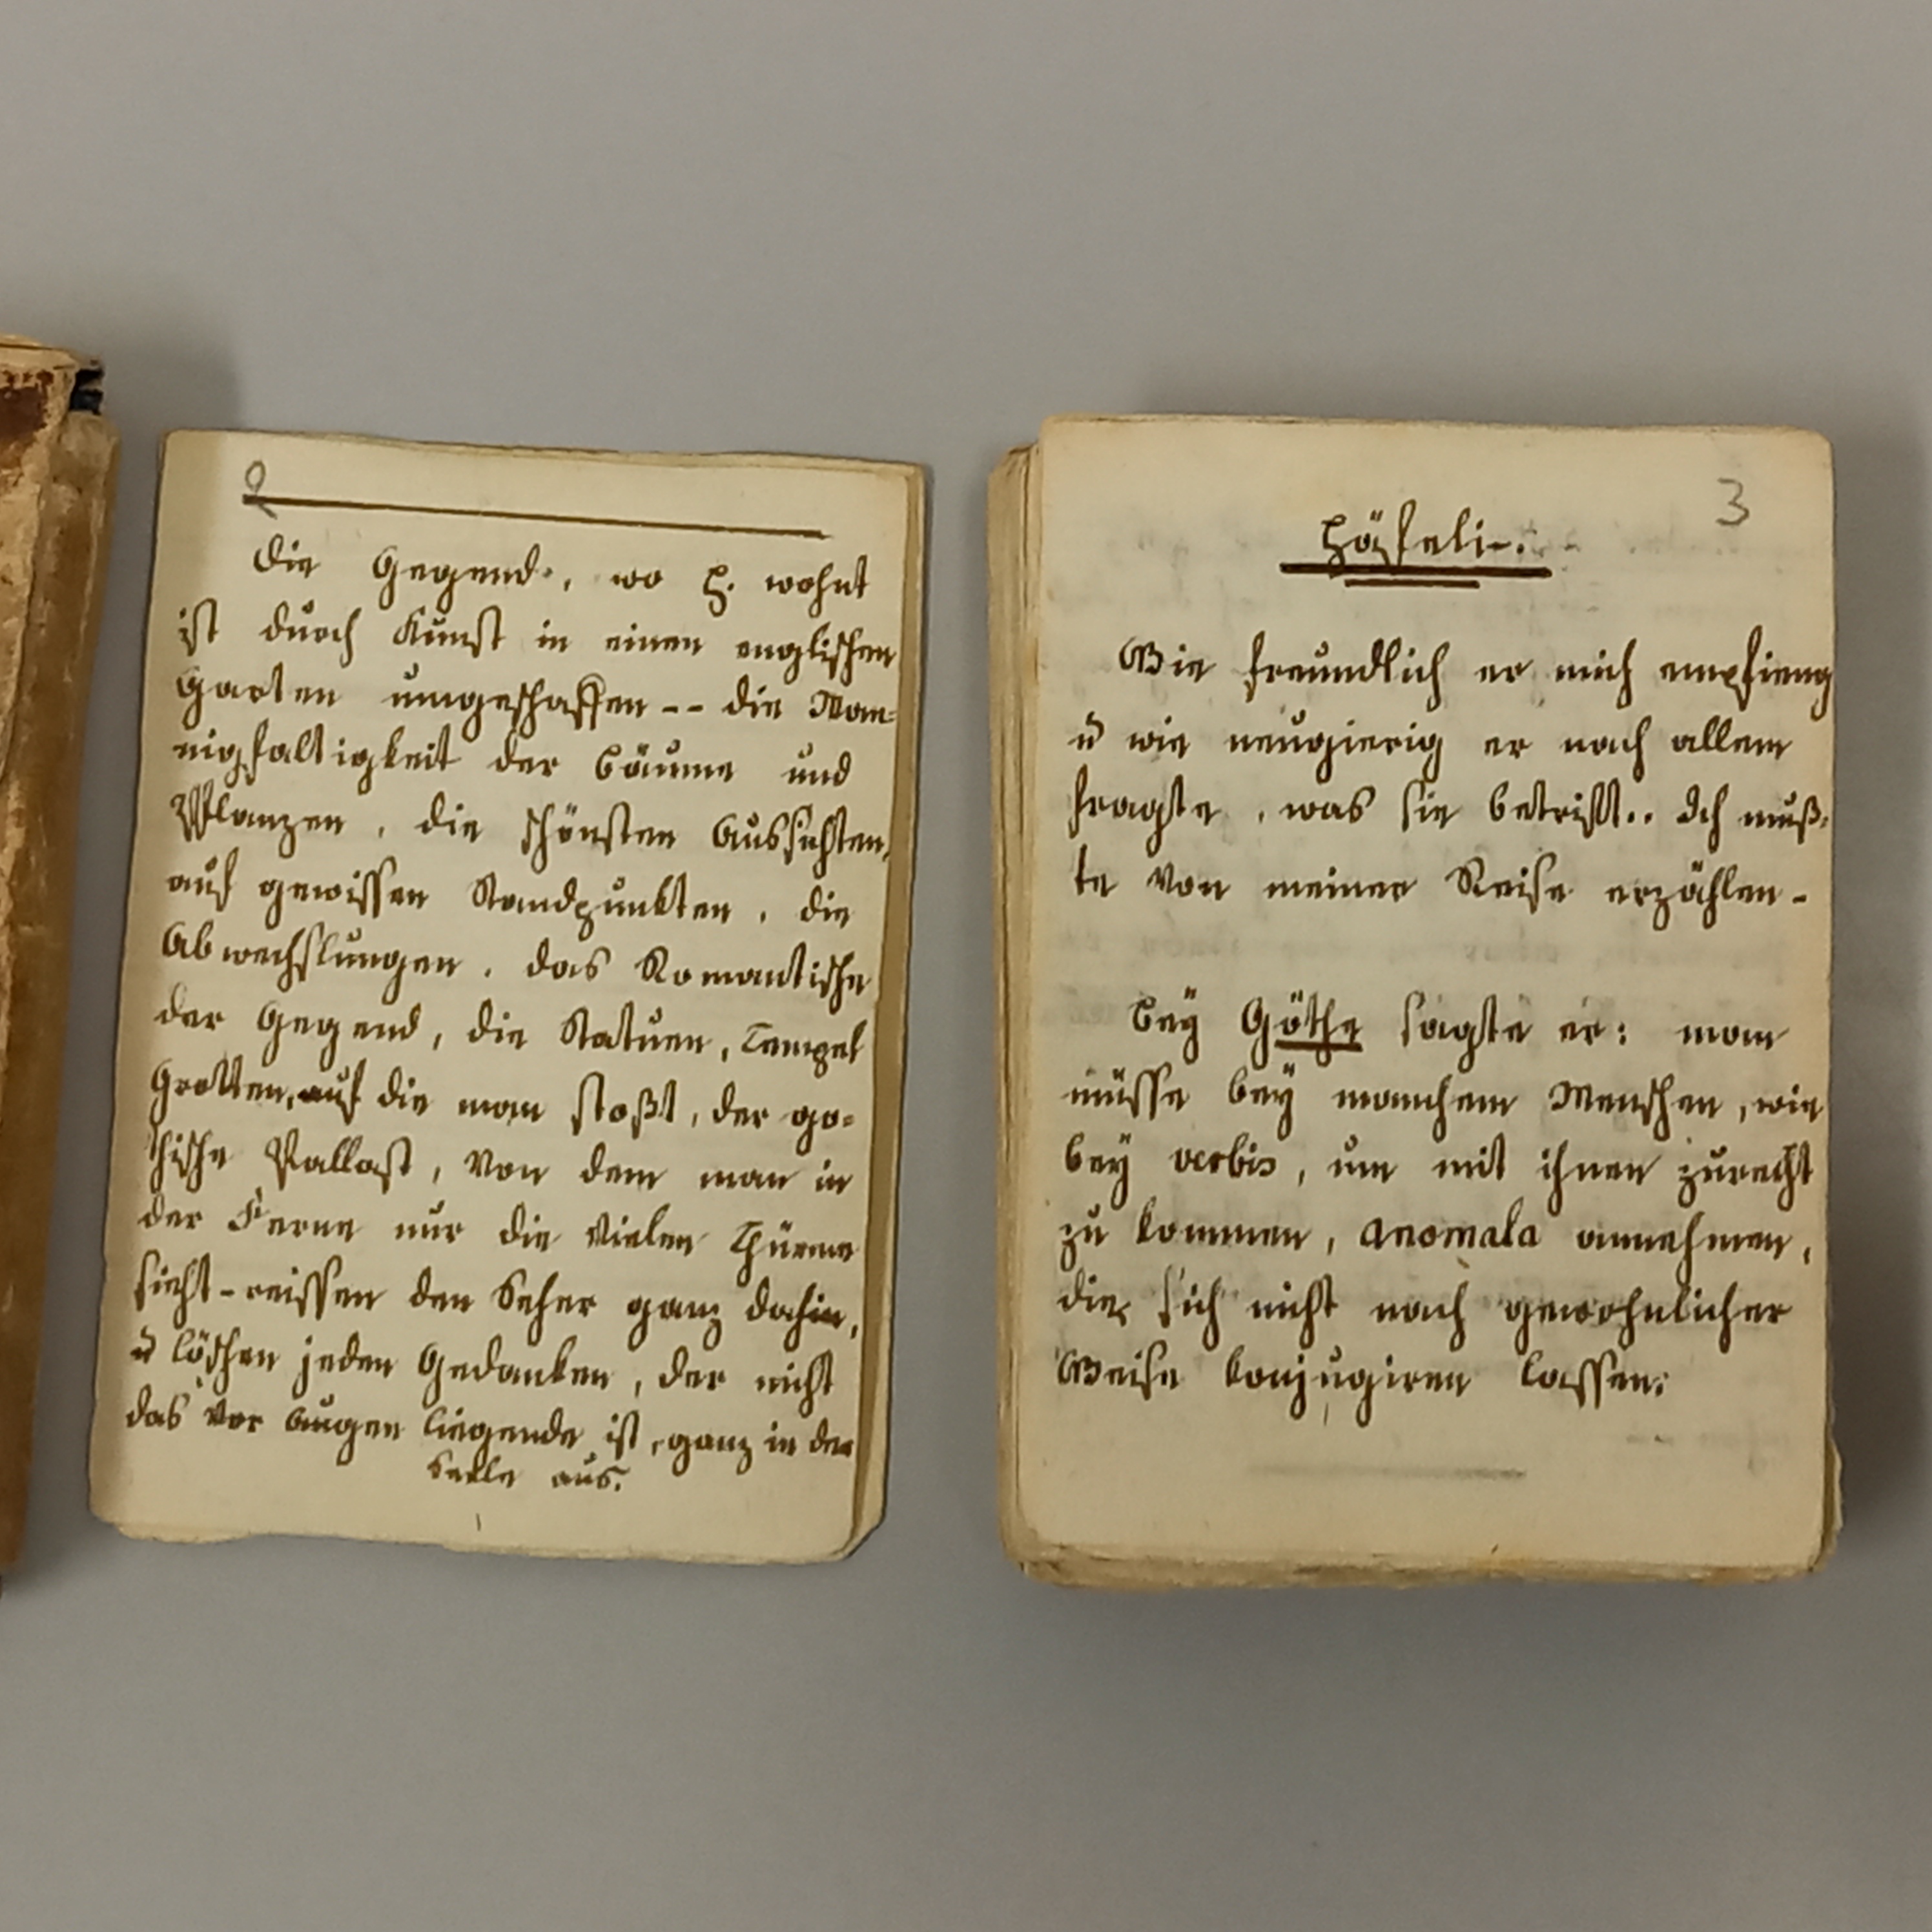 2
Die Gegend, wo H. wohnt
ist durch Kunst in einen englischen
Garten umgeschaffen -- die Man=
nigfaltigkeit der Bäume und
Pflanzen, die schönsten Aussichten,
auf gewissen Standpunkten, die
Abwechslungen, das Romantische
der Gegend, die Statuen, Tempel
Grotten, auf die man stoßt, der go=
thische Pallast, von dem man in
der Ferne nur die vielen Thürme
sieht - reissen den Seher ganz dahin,
u löschen jeden Gedanken, der nicht
das vor Augen liegende ist, ganz in der
Seele aus.
3
Häfeli.
Wie freundlich er mich empfieng
u wie neugierig er nach allem
fragte, was sie betrifft.. Ich muß=
te von meiner Reise erzählen -
Bey Göthe sagte er: man
müsse bey manchem Menschen, wie
bey verbis, um mit ihnen zurecht
zu kommen, anomala annehmen,
die sich nicht nach gewohnlicher
Weise konjugiren lassen: